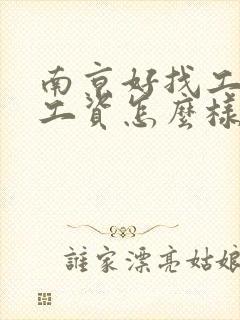 南京好找工
工資怎麼樣
誰家漂亮姑娘